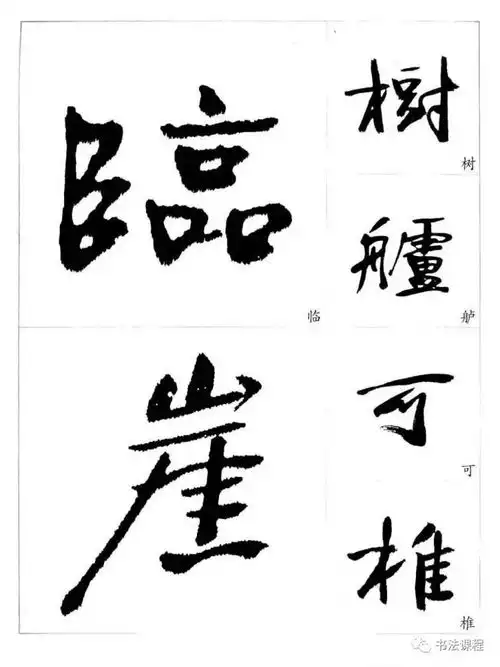 臨
临
崖
樹
树
艫
舻
可
可
椎
椎
书法课程